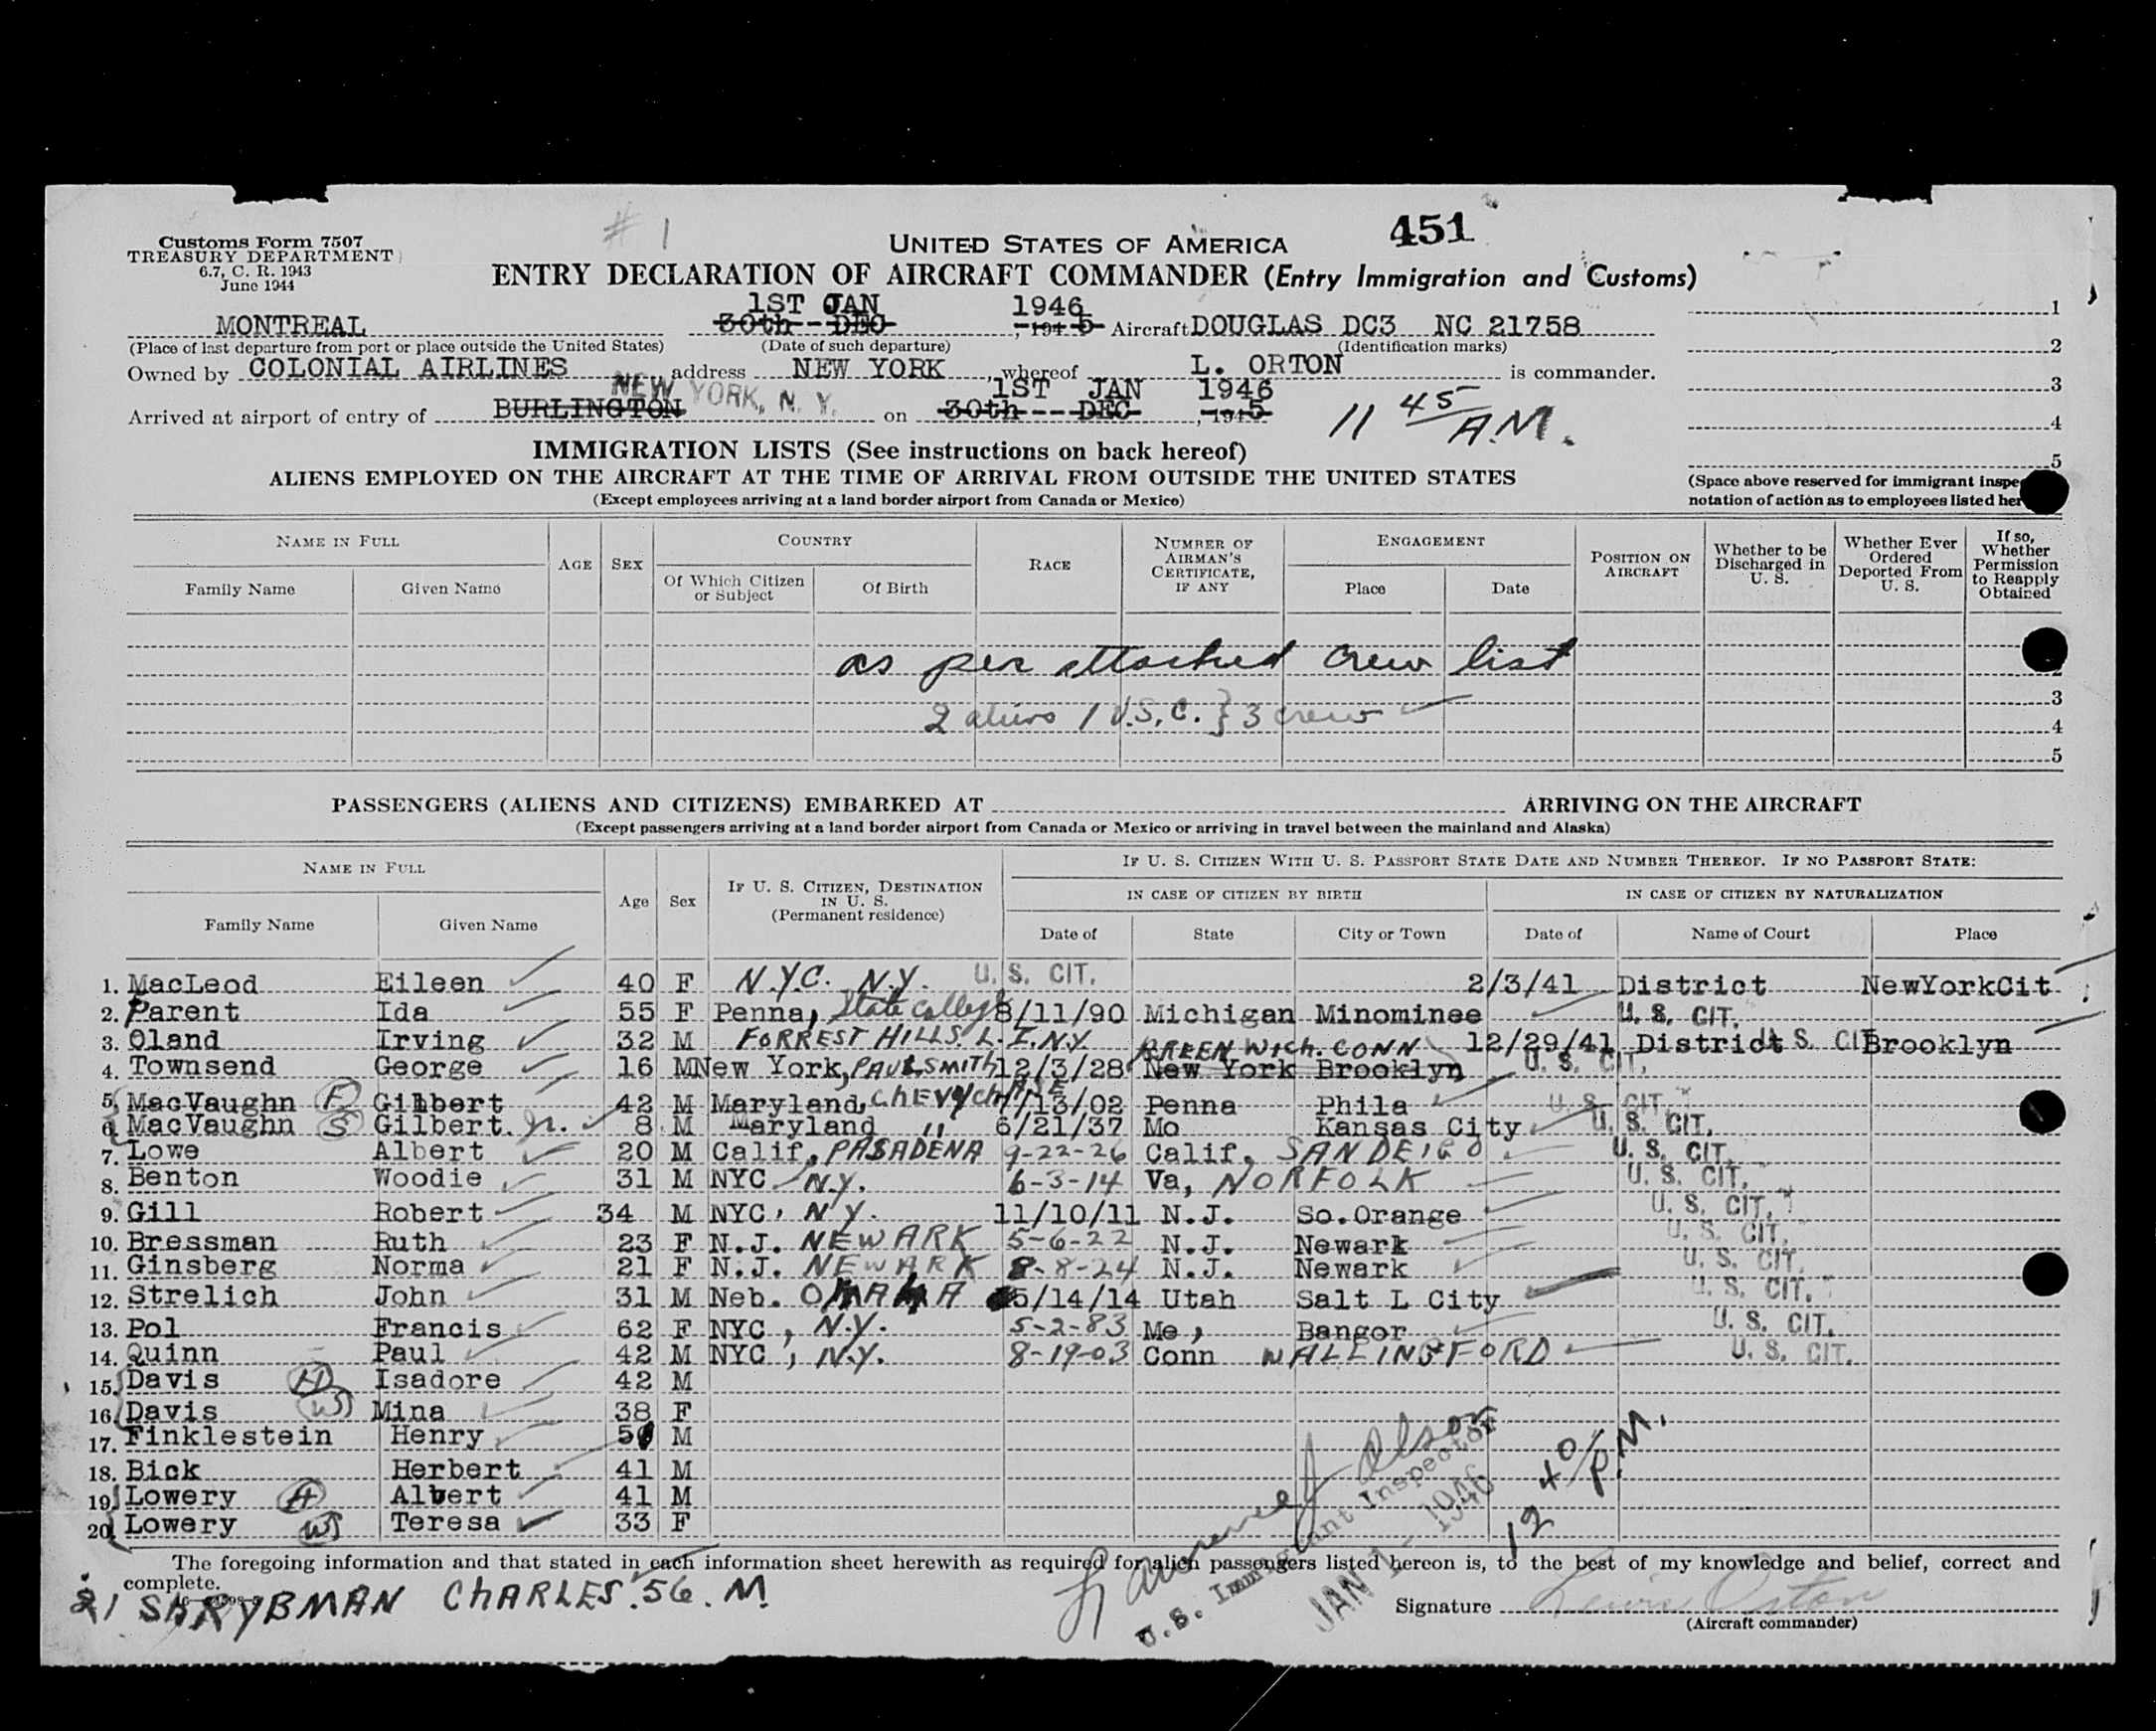 # 1
451
Customs Form 7507
TREASURY DEPARTMENT
6.7, C. R. 1943
June 1944
UNITED STATES OF AMERICA
ENTRY DECLARATION OF AIRCRAFT COMMANDER (Entry Immigration and Customs)
1ST JAN 1946
MONTREAL 30th--DEC , 194 5 Aircraft DOUGLAS DC3 NC 21758 1
(Place of last departure from port or place outside the United States) (Date of such departure) (Identification marks)
2
Owned by COLONIAL AIRLINES , address NEW YORK , whereof L. ORTON is commander.
3
NEW YORK, N. Y. 1ST JAN 1946
Arrived at airport of entry of BURLINGTON on 30th----DEC , 194 5 11 45 A.M.
4
IMMIGRATION LISTS (See instructions on back hereof)
5
ALIENS EMPLOYED ON THE AIRCRAFT AT THE TIME OF ARRIVAL FROM OUTSIDE THE UNITED STATES
(Space above reserved for immigrant inspe
(Except employees arriving at a land border airport from Canada or Mexico)
notation of action as to employees listed her
NAME IN FULL AGE SEX COUNTRY RACE NUMBER OF AIRMAN'S CERTIFICATE, IF ANY ENGAGEMENT POSITION ON AIRCRAFT Whether to be Discharged in U. S. Whether Ever Ordered Deported From U. S. If so, Whether Permission to Reapply Obtained
Family Name Given Name Of Which Citizen or Subject Of Birth Place Date
as per attached crew list
2
3
2 aliens 1 U.S.C. } 3 crew
4
5
PASSENGERS (ALIENS AND CITIZENS) EMBARKED AT ARRIVING ON THE AIRCRAFT
(Except passengers arriving at a land border airport from Canada or Mexico or arriving in travel between the mainland and Alaska)
NAME IN FULL Age Sex IF U. S. CITIZEN, DESTINATION IN U. S. (Permanent residence) IF U. S. CITIZEN WITH U. S. PASSPORT STATE DATE AND NUMBER THEREOF. IF NO PASSPORT STATE:
IN CASE OF CITIZEN BY BIRTH IN CASE OF CITIZEN BY NATURALIZATION
Family Name Given Name Date of State City or Town Date of Name of Court Place
1. MacLeod Eileen 40 F N.Y.C. N.Y. U. S. CIT. 2/3/41 District NewYorkCit
2. Parent Ida 55 F Penna, State College 8/11/90 Michigan Minominee U. S. CIT.
3. Oland Irving 32 M FORREST HILLS. L.I. N.Y. 12/29/41 District U S CIT Brooklyn
GREEN WICH. CONN
4. Townsend George 16 M New York, PAUL SMITH 12/3/28 New York Brooklyn U. S. CIT.
5. MacVaughn F Gilbert 42 M Maryland, CHEVY CHASE 7/13/02 Penna Phila U. S. CIT.
6. MacVaughn S Gilbert. Jr. 8 M Maryland " 6/21/37 Mo Kansas City U. S. CIT.
7. Lowe Albert 20 M Calif, PASADENA 9-22-26 Calif. SAN DEIGO U. S. CIT.
8. Benton Woodie 31 M NYC N.Y. 6-3-14 Va, NORFOLK U. S. CIT.
9. Gill Robert 34 M NYC, N.Y. 11/10/11 N.J. So.Orange U. S. CIT.
10. Bressman Ruth 23 F N.J. NEWARK 5-6-22 N.J. Newark U. S. CIT.
11. Ginsberg Norma 21 F N.J. NEWARK 8-8-24 N.J. Newark U. S. CIT.
12. Strelich John 31 M Neb. OMAHA 5/14/14 Utah Salt L City U. S. CIT.
13. Pol Francis 62 F NYC, N.Y. 5-2-83 Me, Bangor U. S. CIT.
14. Quinn Paul 42 M NYC, N.Y. 8-19-03 Conn WALLINGFORD U. S. CIT.
15. Davis H Isadore 42 M
16. Davis W Mina 38 F
17. Finklestein Henry M
18. Bick Herbert 41 M
19. Lowery H Albert 41 M
20. Lowery W Teresa 33 F
12 40 P.M.
U. S. Immigrant Inspector
JAN 1 - 1946
The foregoing information and that stated in each information sheet herewith as required for alien passengers listed hereon is, to the best of my knowledge and belief, correct and complete.
21 CHARLES. 56. M.
Signature Lewis Orton
(Aircraft commander)